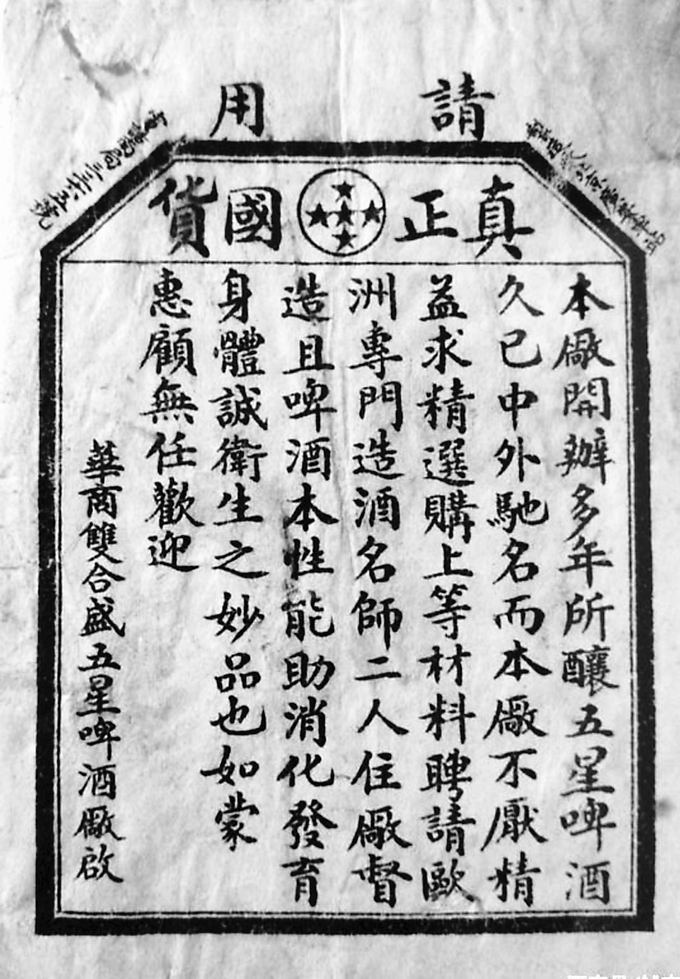 請用
真正國貨
本廠開辦多年所釀五星啤酒
久已中外馳名而本廠不厭精
益求精選購上等材料聘請歐
洲專門造酒名師二人住廠督
造且啤酒本性能助消化發育
身體誠衛生之妙品也如蒙
惠顧無任歡迎
華商雙合盛五星啤酒廠啟